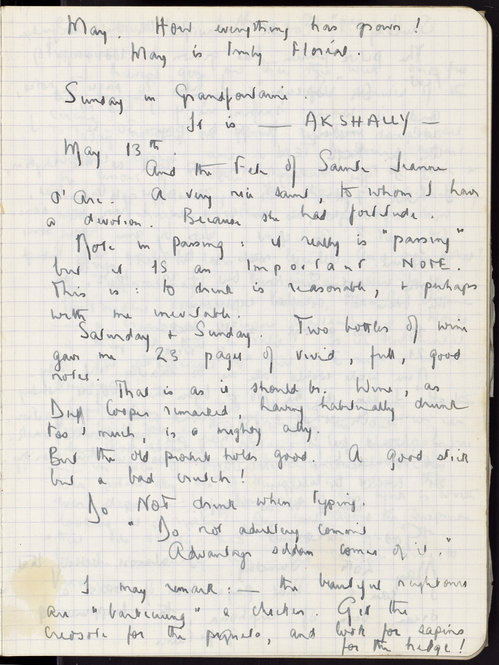 May. How everything has grown!
May is truly Floréal.
Sunday in Grandfontaine.
It is — AKSHALLY —
May 13th.
And the Fete of Sainte Jeanne
d'Arc. A very nice saint, to whom I have
a devotion. Because she had fortitude.
Note in passing: it really is "passing"
but it IS an Important NOTE.
This is: to drink is reasonable, + perhaps
with me inevitable.
Saturday + Sunday. Two bottles of wine
gave me 23 pages of vivid, full, good
notes.
That is as it should be. Wine, as
Duff Cooper remarked, having habitually drunk
too much, is a mighty ally.
But the old proverb holds good. A good stick
but a bad crutch!
Do NOT drink when typing.
"Do not adultery commit
Advantage seldom comes of it."
I may remark: — the beautiful neighbours
are "barkening" a chicken. Get the
creosote for the piquets, and look for sapins
for the hedge!